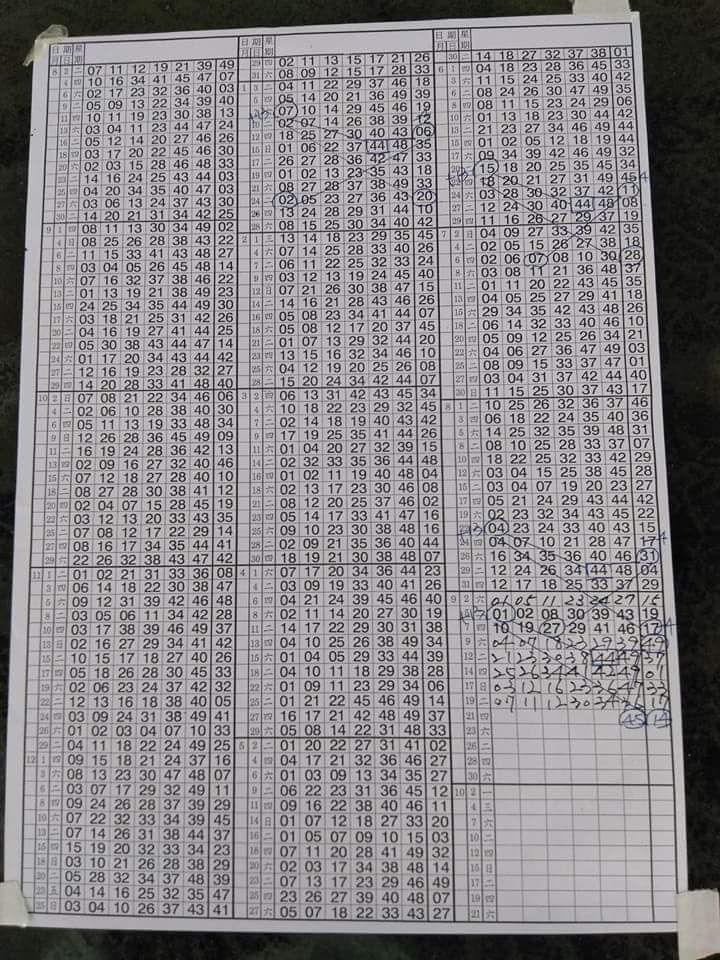 日期 星期
月日
8 2 二 07 11 12 19 21 39 49
4 四 10 16 34 41 45 47 07
6 六 02 17 23 32 36 40 03
9 二 05 09 13 22 34 39 40
11 四 10 11 19 23 30 38 13
03 04 11 23 44 47 24
05 12 14 20 27 46 26
03 17 20 22 45 46 30
02 03 15 28 46 48 33
14 16 24 25 43 44 03
04 20 34 35 40 47 03
27 六 03 06 13 24 37 43 30
30 二 14 20 21 31 34 42 25
9 1 四 08 11 13 30 34 49 02
4 日 08 25 26 28 38 43 22
6 二 11 15 33 41 43 48 27
8 四 03 04 05 26 45 48 14
10 六 07 16 32 37 38 46 22
13 二 01 13 19 21 38 49 23
15 四 24 25 34 35 44 49 30
17 六 03 18 21 25 31 42 26
20 二 04 16 19 27 41 44 25
22 四 05 30 38 43 44 47 14
24 六 01 17 20 34 43 44 42
27 二 12 16 19 23 28 32 27
29 四 14 20 28 33 41 48 40
10 2 日 07 08 21 22 34 46 06
4 二 02 06 10 28 38 40 30
6 四 05 11 13 19 33 48 34
9 日 12 26 28 36 45 49 09
11 二 16 19 24 28 36 42 13
13 四 02 09 16 27 32 40 46
15 六 07 12 18 27 28 40 10
18 二 08 27 28 30 38 41 12
20 四 02 04 07 15 28 45 19
22 六 03 12 13 20 33 43 35
25 二 07 08 12 17 22 29 14
27 四 08 16 17 34 35 44 41
29 六 22 26 32 38 43 47 42
11 1 二 01 02 21 31 33 36 08
3 四 06 14 18 22 30 38 47
5 六 09 12 31 39 42 46 48
8 二 03 05 06 11 34 42 28
10 四 03 17 38 39 46 49 37
13 日 02 16 27 29 34 41 42
15 二 10 15 17 18 27 40 26
17 四 05 18 26 28 30 45 33
19 六 02 06 23 24 37 42 32
22 二 12 13 16 18 38 40 05
24 四 03 09 24 31 38 49 41
26 六 01 02 03 04 07 10 33
29 二 04 11 18 22 24 49 25
12 1 四 09 15 18 21 24 37 16
3 六 08 13 23 30 47 48 07
6 二 03 07 17 29 32 49 11
8 四 09 24 26 28 37 39 29
10 六 07 22 32 33 34 39 45
13 二 07 14 26 31 38 44 37
15 四 15 19 20 32 33 34 23
18 日 03 10 21 26 28 38 29
20 二 05 28 32 34 37 48 39
23 五 04 14 16 25 32 35 47
25 日 03 04 10 26 37 43 41
日期 星期
月日
29 四 02 11 13 15 17 21 26
31 六 08 09 12 15 17 28 33
1 3 二 04 11 22 29 37 46 18
5 四 05 14 20 21 36 49 39
07 10 14 29 45 46 19
02 07 14 26 38 39 12
12 四 18 25 27 30 40 43 06
15 日 01 06 22 37 44 48 35
17 二 26 27 28 36 42 47 33
19 四 01 02 13 23 35 43 18
21 六 08 27 28 37 38 49 33
24 二 02 05 23 27 36 43 20
26 四 13 24 28 29 31 44 10
28 六 08 15 25 30 34 40 42
2 1 三 13 14 18 23 29 35 45
4 六 07 14 25 28 33 40 26
7 二 06 11 22 25 32 33 24
9 四 03 12 13 19 24 45 40
12 日 07 21 26 30 38 47 15
14 二 14 16 21 28 43 46 26
16 四 05 08 23 34 41 44 07
18 六 05 08 12 17 20 37 45
21 二 01 07 13 29 32 44 20
23 四 13 15 16 32 34 46 10
25 六 04 12 19 20 25 26 08
28 二 15 20 24 34 42 44 07
3 2 四 06 13 31 42 43 45 34
4 六 10 18 22 23 29 32 45
7 二 02 14 18 19 40 43 42
9 四 17 19 25 35 41 44 26
11 六 01 04 20 27 32 39 15
14 二 02 32 33 35 36 44 48
16 四 01 02 11 19 40 48 04
18 六 02 13 17 23 30 46 08
21 二 08 12 20 25 37 46 02
23 四 05 14 17 33 41 47 16
25 六 09 10 23 30 38 48 16
28 二 02 09 21 35 36 44 90
30 四 18 19 21 30 38 48 07
4 1 六 07 17 20 34 36 44 23
4 二 03 09 19 33 40 41 26
6 四 04 21 24 39 45 46 40
8 六 02 11 14 20 27 30 19
11 二 14 17 22 29 30 31 38
13 四 04 10 25 26 38 49 34
15 六 01 04 05 29 33 44 39
18 二 04 10 11 18 29 38 28
20 四 01 09 11 23 29 34 06
22 六 01 21 22 45 46 49 14
27 四 16 17 21 42 48 49 37
29 六 05 08 14 22 31 48 33
5 2 二 01 20 22 27 31 41 02
4 四 04 17 21 32 36 46 27
6 六 01 03 09 13 34 35 27
9 二 06 22 23 31 36 45 12
11 四 09 16 22 38 40 46 11
14 日 01 07 12 18 27 33 20
16 二 01 05 07 09 10 15 03
18 四 07 11 20 28 41 49 32
20 六 02 03 17 34 38 48 14
23 二 07 13 17 23 29 46 49
25 四 23 26 27 39 40 48 07
27 六 05 07 18 22 33 43 27
日期 星期
月日
30 二 14 18 27 32 37 38 01
6 1 四 04 18 23 28 36 45 33
3 六 11 15 24 25 33 40 42
6 二 08 24 26 30 47 49 35
8 四 08 11 15 23 24 29 06
10 六 01 13 18 23 30 44 42
13 二 21 23 27 34 46 49 44
15 四 01 02 05 12 18 19 44
17 六 09 34 39 42 46 49 32
15 18 20 25 35 45 34
18 20 21 27 31 49 45
24 六 03 28 30 32 37 42 11
27 二 11 24 30 40 44 48 08
29 四 11 16 26 27 29 37 19
7 2 日 04 09 27 33 39 42 35
4 二 02 05 15 26 27 38 18
6 四 02 06 07 08 10 30 28
8 六 03 08 11 21 36 48 37
11 二 01 11 20 22 43 45 35
13 四 04 05 25 27 29 41 18
15 六 29 34 35 42 43 48 26
18 二 06 14 32 33 40 46 10
20 四 05 09 12 25 26 34 21
22 六 04 06 27 36 47 49 03
25 二 08 09 15 33 37 47 01
27 四 03 04 31 37 42 44 40
30 日 11 15 25 30 37 43 17
8 1 二 10 25 26 32 36 37 46
3 四 06 18 22 24 35 40 36
5 六 14 25 32 35 39 48 31
8 二 08 10 25 28 33 37 07
10 四 18 22 25 32 33 42 29
12 六 03 04 15 25 38 45 28
15 二 03 04 07 19 20 23 27
17 四 05 21 24 29 43 44 42
19 六 02 23 32 34 43 45 22
04 23 24 33 40 43 15
24 四 04 07 10 21 28 47 17
26 六 16 34 35 36 40 46 31
29 二 12 24 26 34 44 48 04
31 四 12 17 18 25 33 37 29
9 2 六 01 05 11 23 24 27 15
01 02 08 30 39 43 19
10 19 27 29 41 46 17
9 六
12 二
14 四
17 日 03 12 16 23 36 47 33
19 二 07 11 12 30 34 36 17
21 四 45 14
23 六
26 二
28 四
30 六
10 2 一
4 三